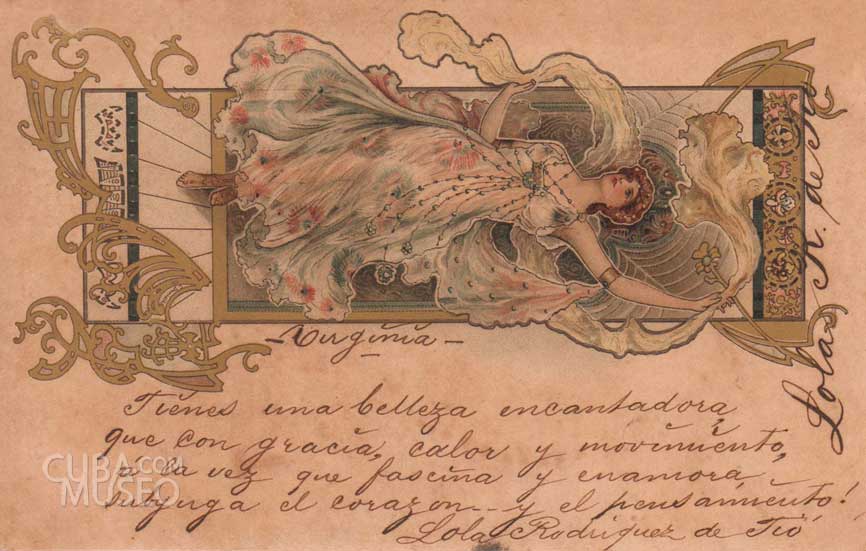 - Virginia -
Tienes una belleza encantadora,
que con gracia, calor y movimiento,
a la vez que fascina y enamora,
subyuga el corazon... y el pensamiento!
Lola Rodriguez de Tió
Lola R. de Tió
CUBA CON
MUSEO